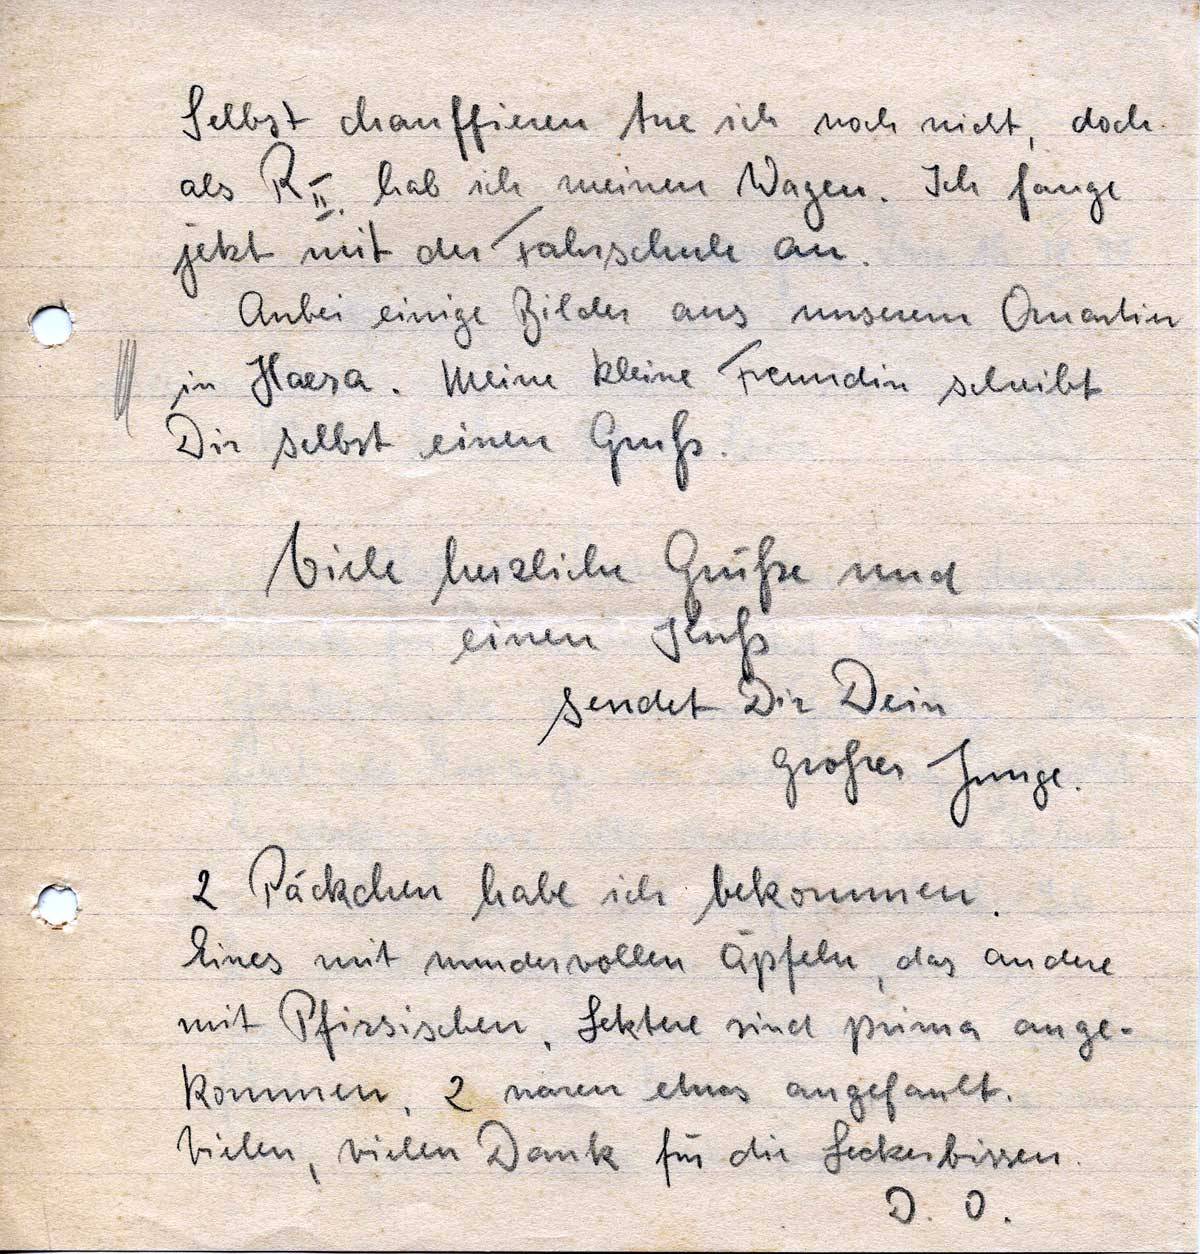 Selbst chauffieren tue ich noch nicht, doch
als R II. hab ich meinen Wagen. Ich fange
jetzt mit der Fahrschule an.
Anbei einige Bilder aus unserem Quartier
in Haesa. Meine kleine Freundin schreibt
Dir selbst einen Gruß.
Viele herzliche Grüße und
einen Kuß
sendet Dir Dein
großer Junge.
2 Päckchen habe ich bekommen.
Eines mit wundervollen Äpfeln, das andere
mit Pfirsischen, Letztere sind prima ange-
kommen, 2 waren etwas angefault.
Vielen, vielen Dank für die Leckerbissen.
D. O.